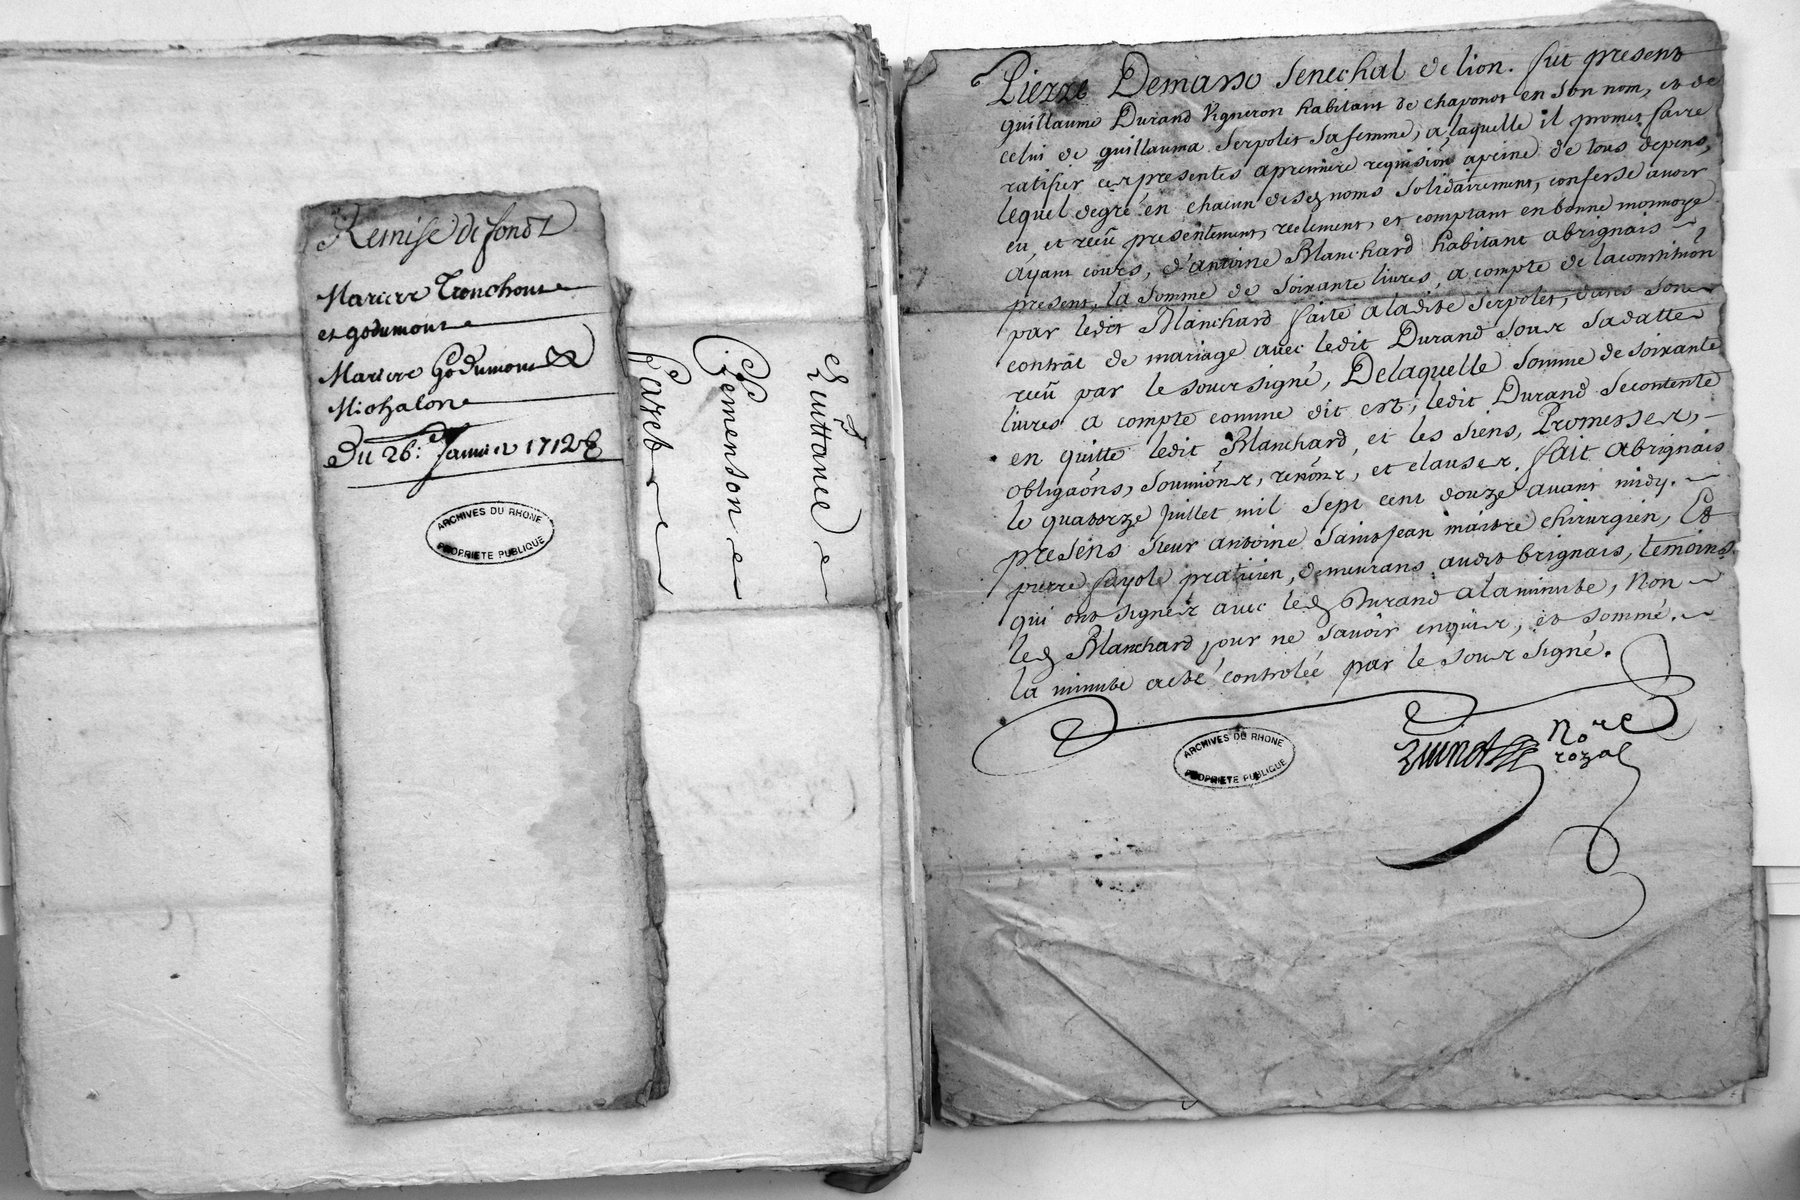 Remise de fondz
Mariere Tronchont
et godumont
Mariere Godumont
Michalon
Du 26e. Janvier 1712
ARCHIVES DU RHONE
PROPRIETE PUBLIQUE
Quittance
Clemenson
Paret
Pierre Demasso senechal de lion. fut present
guillaume Durand Vigneron habitant de chaponot en son nom, et de
celui de guillauma Serpolet sa femme, a laquelle il promet faire
ratifier ces presentes a premiere requision apeine de tous depens,
lequel degré en chacun desdz noms solidairement, confesse avoir
eu et receu presentement, reelement, et comptant en bonne monnoye
ayant cours, d'antoine Blanchard habitant abrignais
present, la somme de soixante livres, a compte de la constitution
par ledit Blanchard faite a ladite Serpolet, dans son
contrat de mariage avec ledit Durand sous sa datte
receu par le soussigné, Delaquelle somme de soixante
livres a compte comme dit est; ledit Durand se contente
en quitte ledit Blanchard, et les siens, Promesses,
obligaôns, soumiôns, renônz, et clauses. fait abrignais
le quatorze juillet mil sept cent douze avant midy.
presens sieur antoine Saint Jean maitre chirurgien, Et
pierre fayole praticien, demeurans audit brignais, temoins
qui ont signéz avec ledz Durand a la minute, Non
ledz Blanchard pour ne savoir enquis, et sommé.
la minute a eté controlée par le soussigné.
Nore
royal
ARCHIVES DU RHONE
PROPRIETE PUBLIQUE